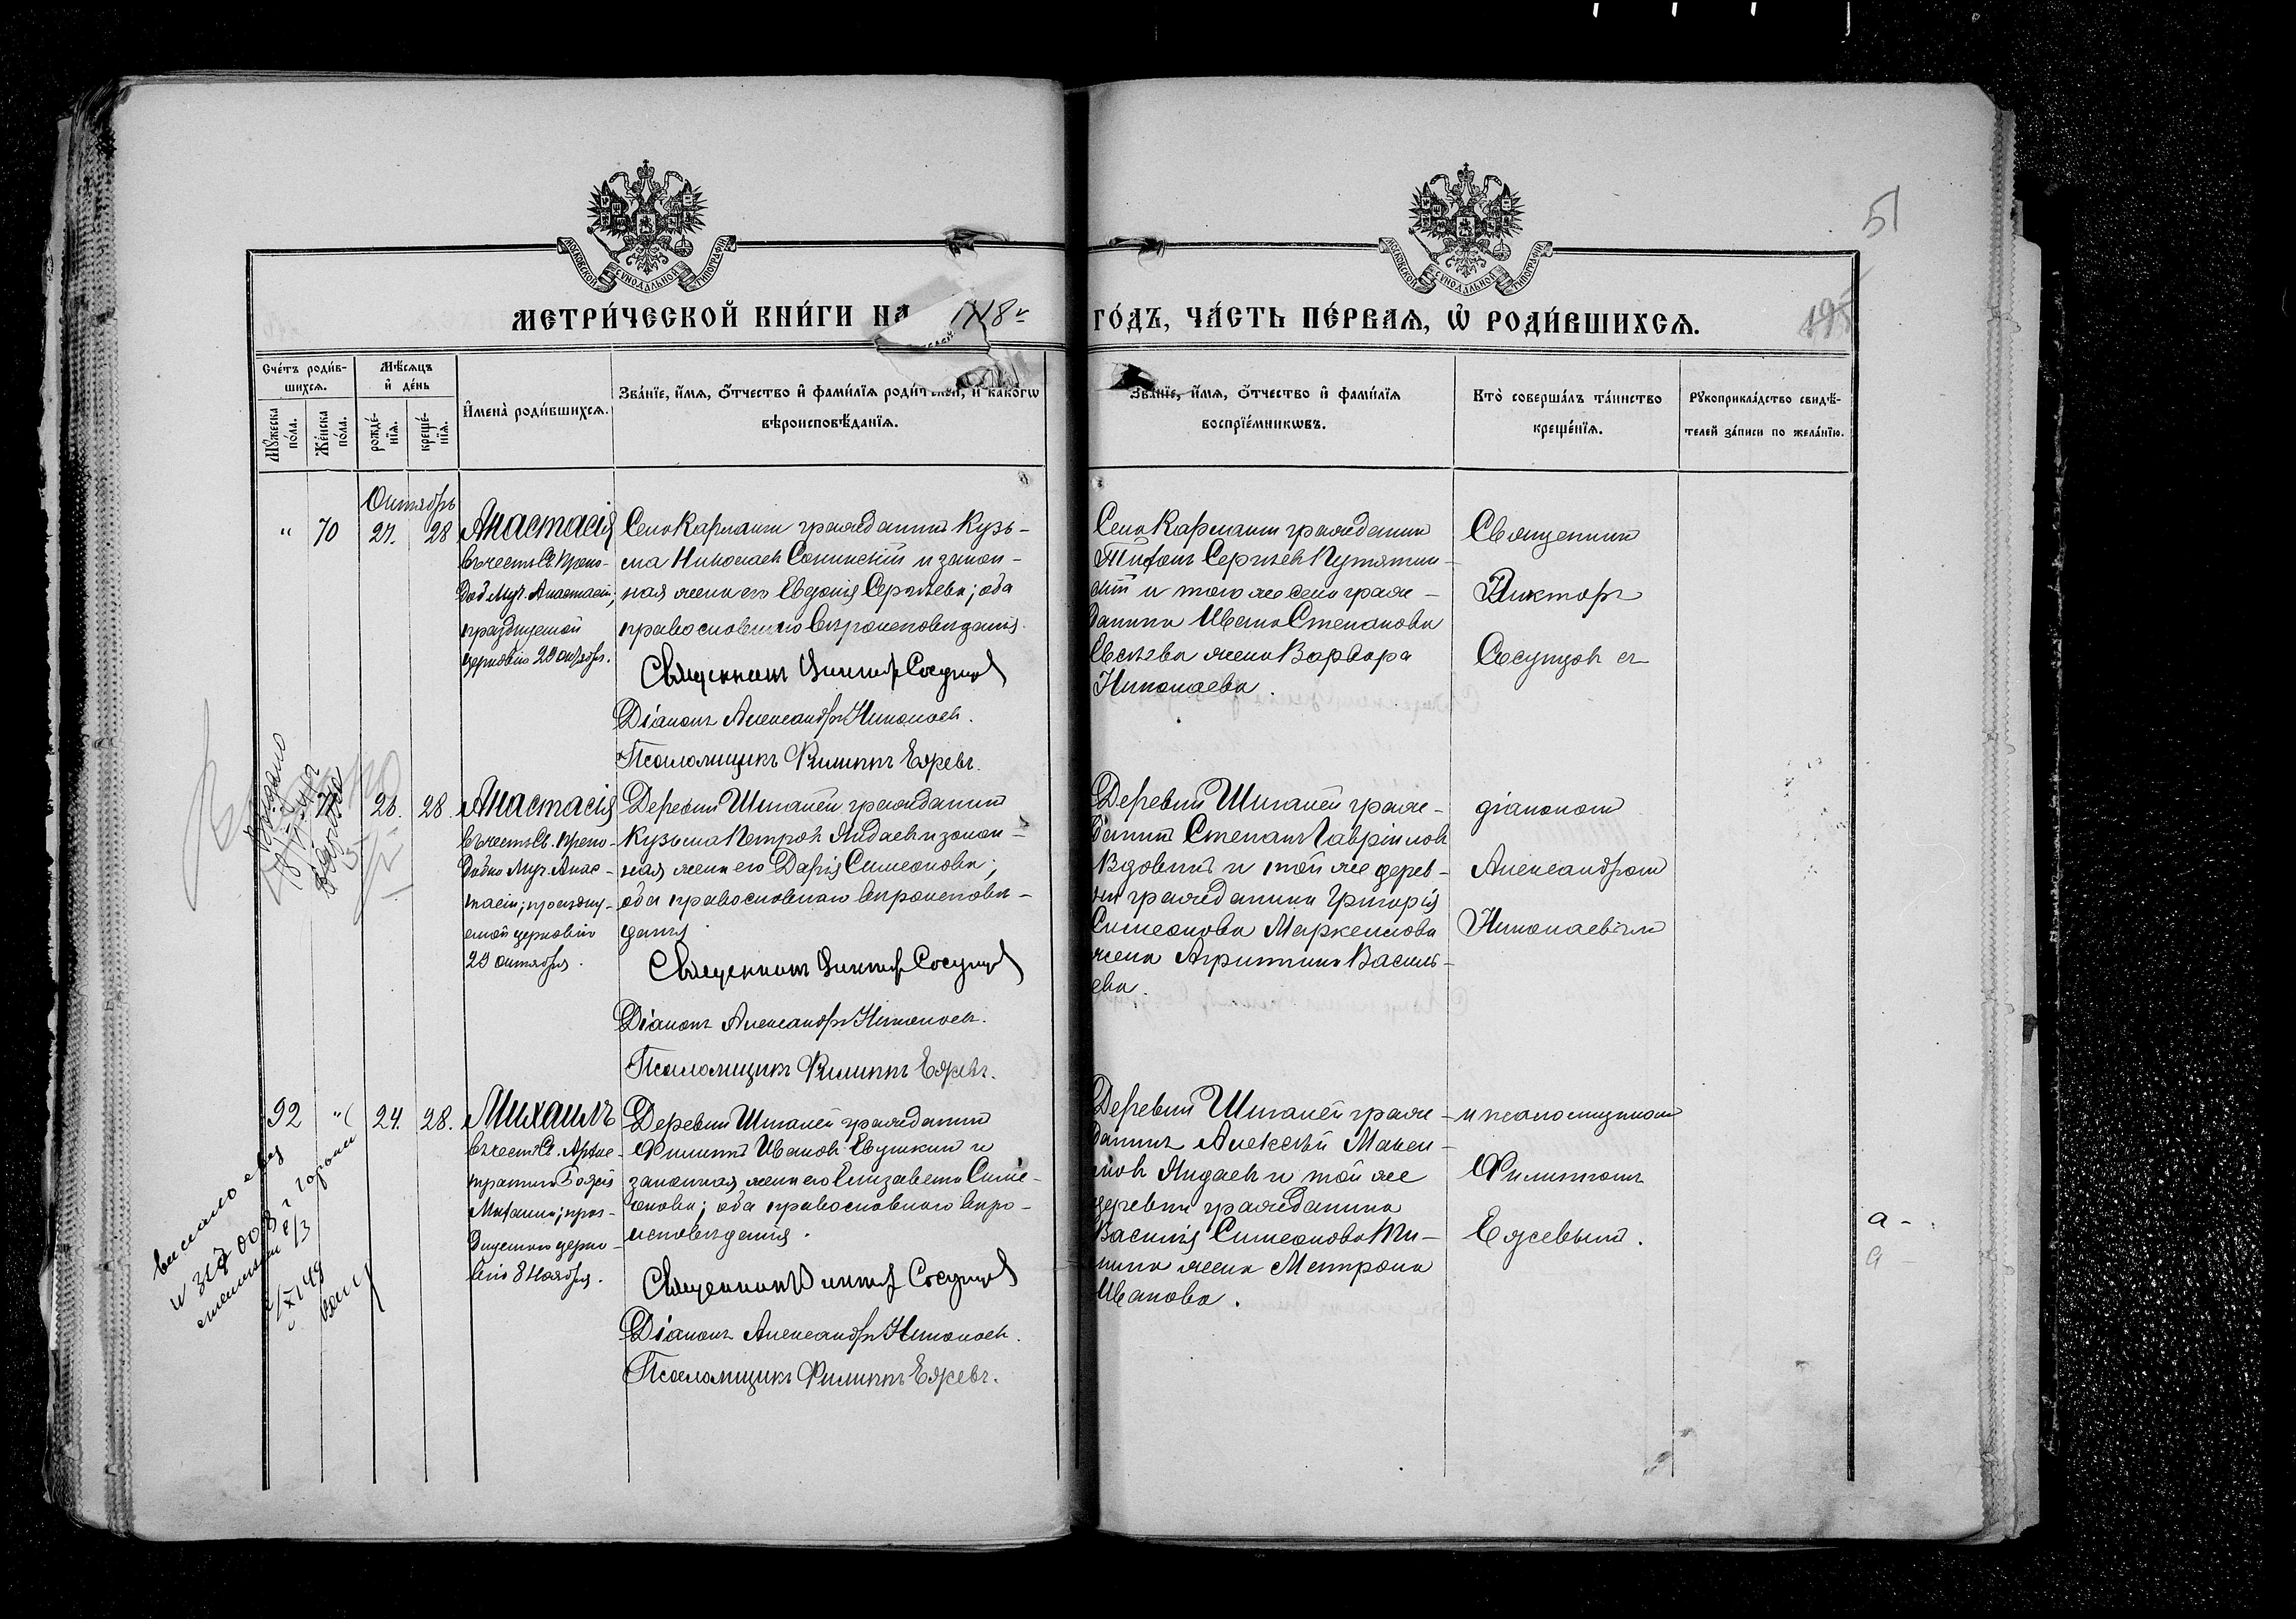 51
МОСКОВСКОЙ СѴНОДАЛЬНОЙ ТИПОГРАФІИ
МОСКОВСКОЙ СѴНОДАЛЬНОЙ ТИПОГРАФІИ
МЕТРИ́ЧЕСКОЙ КНИ́ГИ НА 1918 г
ГО́ДЪ, ЧА́СТЬ ПЕ́РВАѦ, Ѡ҆ РОДИ́ВШИХСѦ.
195
Сче́тъ роди́в-
шихсѧ.
Мꙋ́жеска
по́ла.
Же́нска
по́ла.
Мѣ́сѧцъ
и҆ де́нь
рожде́-
нїѧ.
креще́-
нїѧ.
И҆мена̀ роди́вшихсѧ.
Зва́нїе, и҆́мѧ, ѻ҆́тчество и҆ фами́лїѧ роди́телей, и҆ како́гѡ
вѣроисповѣ́данїѧ.
Зва́нїе, и҆́мѧ, ѻ҆́тчество и҆ фами́лїѧ
воспрїе́мникѡвъ.
Кто̀ соверша́лъ та́инство
креще́нїѧ.
Рꙋкоприкла́дство свидѣ́-
телей за́писи по жела́нїю.
Октябрь
" 70 27. 28
Анастасія
въ честь Св. Препо-
доб. Муч. Анастасіи,
празднуемой
церковію 29 октября.
Село Кармалы гражданинъ Кузь-
ма Николаевъ Сокинскій и закон-
ная жена его Евдокія Сергѣева; оба
православнаго вѣроисповѣданія.
Священникъ Викторъ Сосунцов
Діаконъ Александръ Николаев.
Псаломщикъ Филиппъ Ежевъ.
Село Кармалы гражданинъ
Тихонъ Сергѣевъ Путятин-
скій и того же села граж-
данина Ивана Степанова
Евсѣева жена Варвара
Николаева.
Священникъ
Викторъ
Сосунцовъ съ
26. 28.
Анастасія
въ честь Св. Препо-
добно Муч. Анас-
тасіи; праздну-
емой церковію
29 октября.
Деревни Шигалей гражданинъ
Кузьма Петровъ Яндаевъ и закон-
ная жена его Дарія Симеонова;
оба православнаго вѣроисповѣ-
данія
Священникъ Викторъ Сосунцов
Діаконъ Александръ Николаев.
Псаломщикъ Филиппъ Ежевъ.
Деревни Шигалей граж-
данинъ Степанъ Гавріиловъ
Вдовинъ и той же дерев-
ни гражданина Григорія
Симеонова Маркелова
жена Агриппина Василь-
ева.
діакономъ
Александромъ
Николаевымъ
92 " 24. 28.
Михаилъ
въ честь Св. Архис-
тратига Божія
Михаила; праз-
днуемаго церко-
вію 8 Ноября.
Деревни Шигалей гражданинъ
Филиппъ Ивановъ Евушкинъ и
законная жена его Елизавета Симе-
онова; оба православнаго вѣро-
исповѣданія.
Священникъ Викторъ Сосунцов
Діаконъ Александръ Николаев.
Псаломщикъ Филиппъ Ежевъ.
Деревни Шигалей граж-
данинъ Алексѣй Макси-
мовъ Яндаевъ и той же
деревни гражданина
Василія Симеонова
жена Матрона
Иванова.
и псаломщикомъ
Филиппомъ
Ежевымъ.
а -
а -